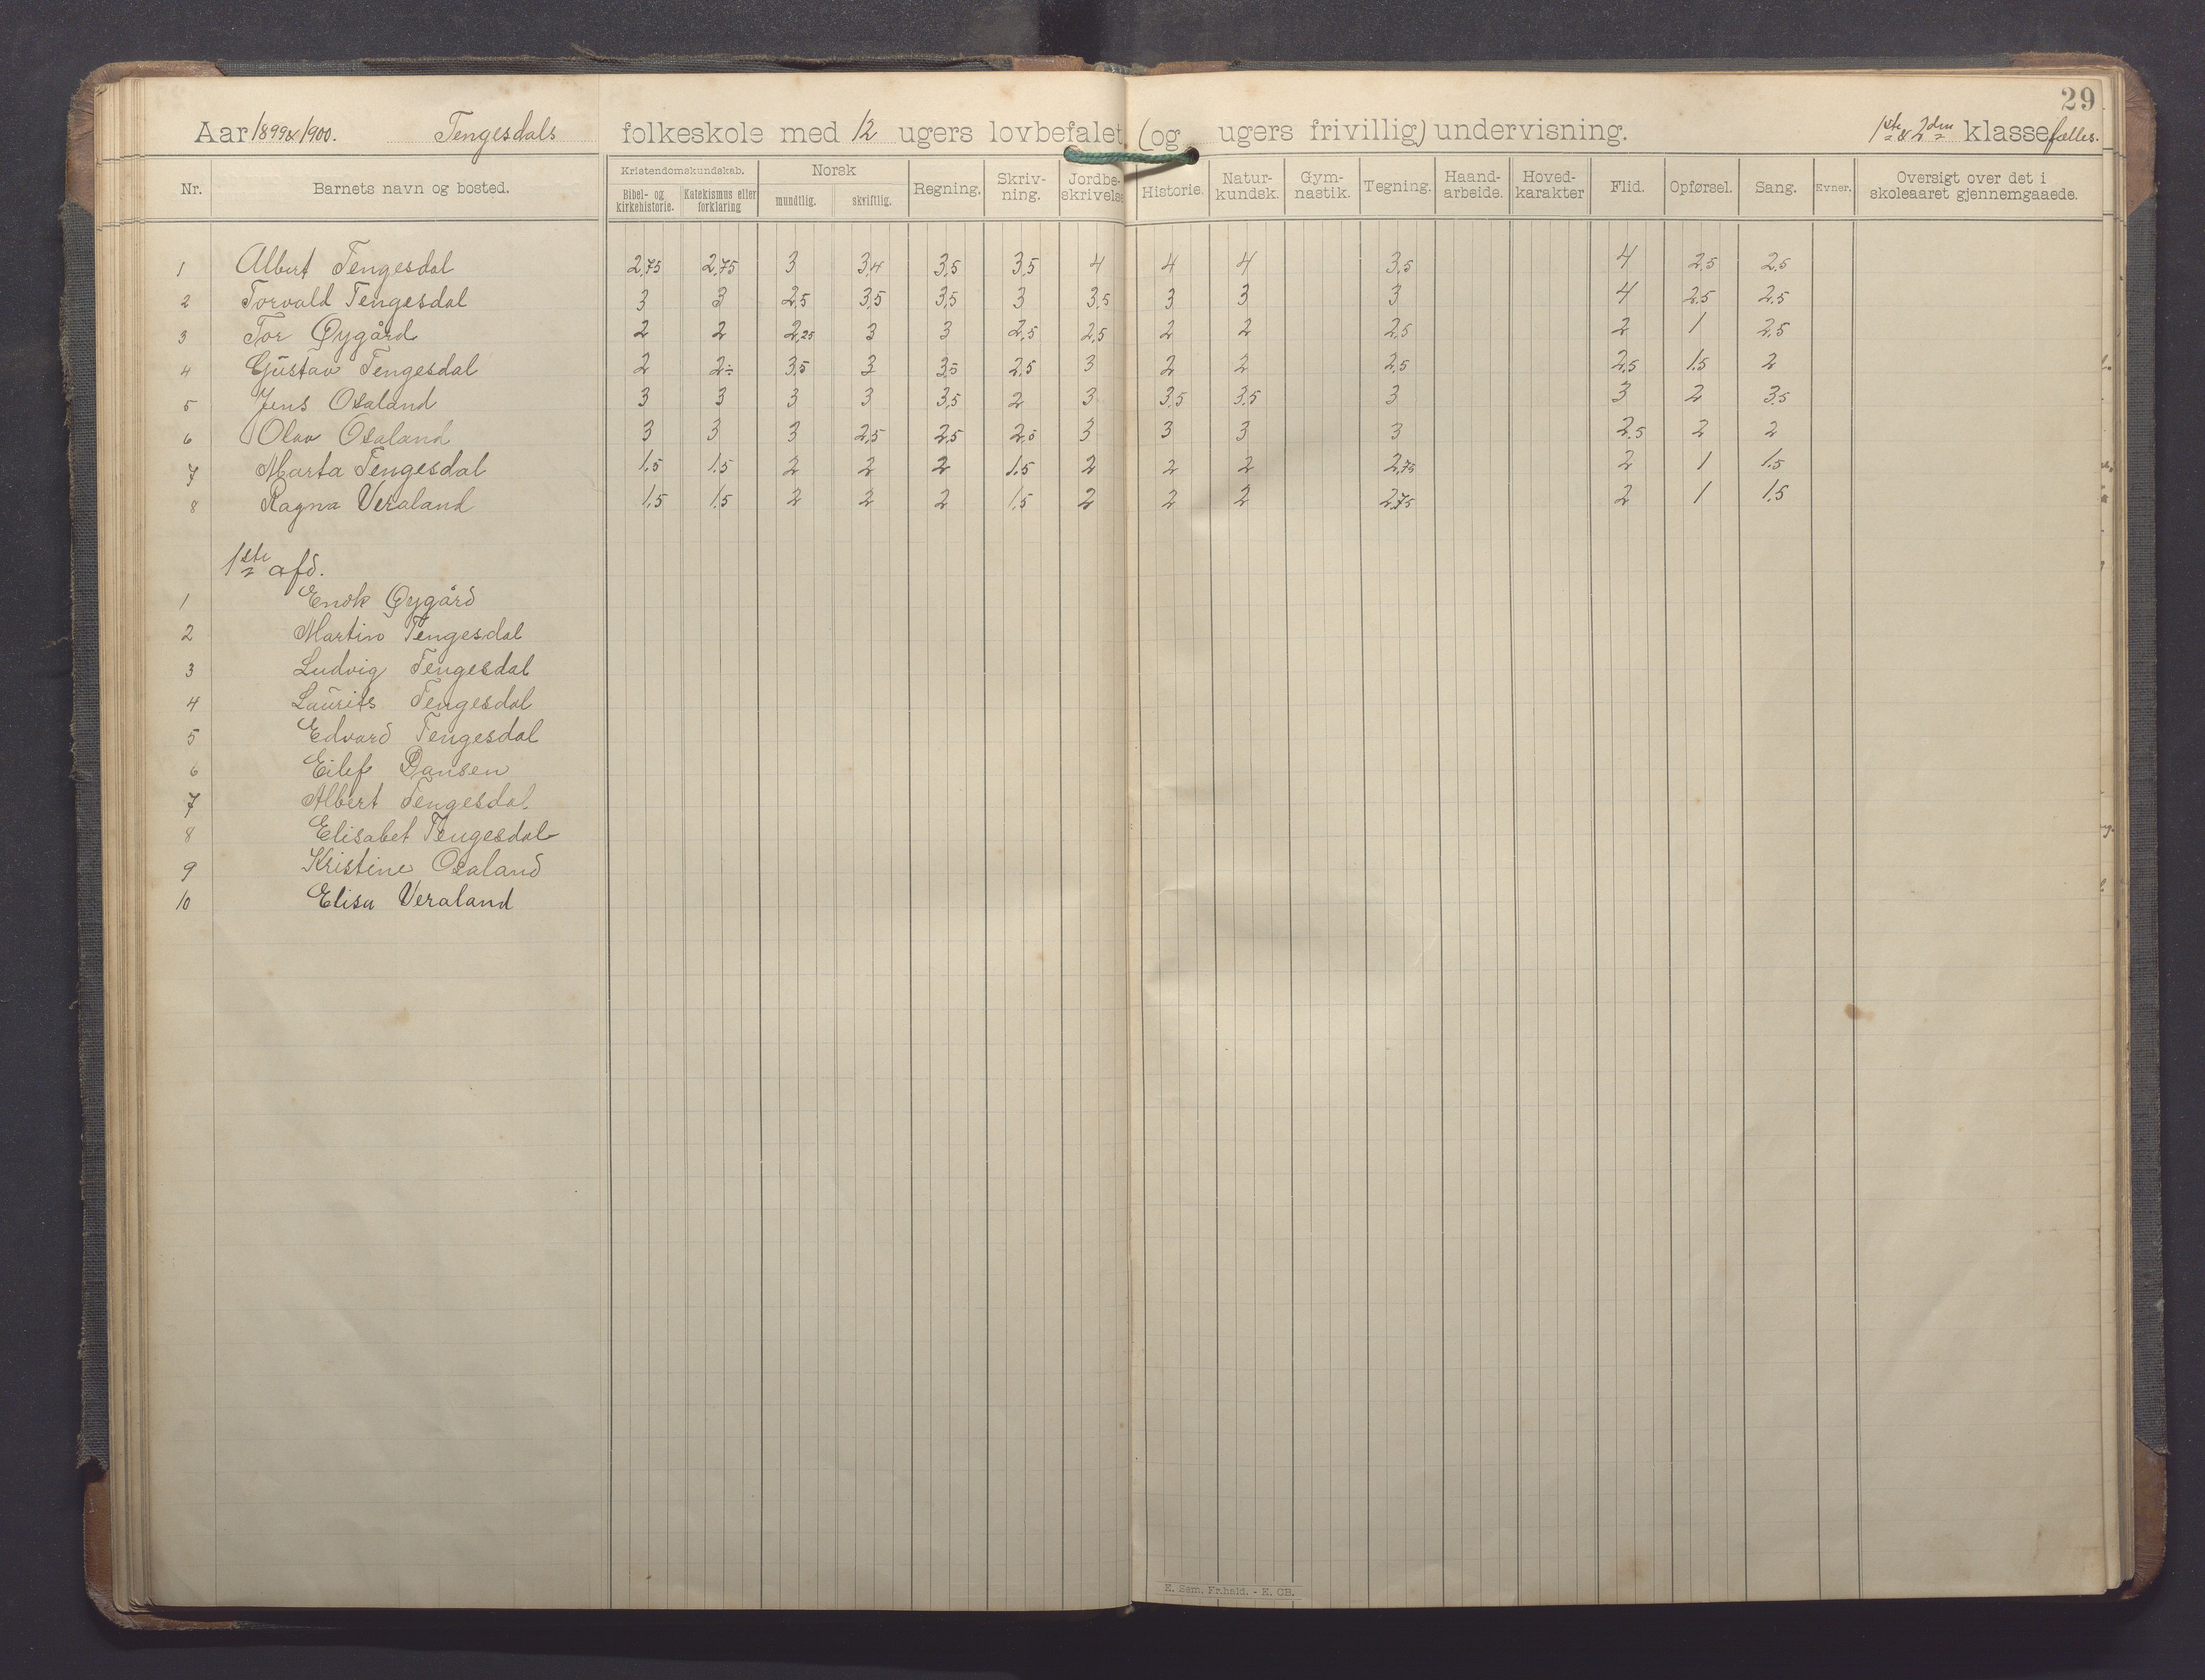 29
Aar 1899 & 1900. Tengesdals folkeskole med 12 ugers lovbefalet (og ugers frivillig) undervisning. 1ste & 2den klasse fælles.
Nr. Barnets navn og bosted. Kristendomskundskab. Bibel- og kirkehistorie. Katekismus eller forklaring Norsk mundtlig. skriftlig. Regning. Skriv-ning. Jordbe-skrivelse Historie. Natur-kundsk. Gym-nastik. Tegning. Haand-arbeide. Hoved-karakter Flid. Opførsel. Sang. Evner. Oversigt over det i skoleaaret gjennemgaaede.
1 Albert Tengesdal 2,75 2,75 3 3,4 3,5 3,5 4 4 4 3,5 4 2,5 2,5
2 Torvald Tengesdal 3 3 2,5 3,5 3,5 3 3,5 3 3 3 4 2,5 2,5
3 Tor Øygård 2 2 2,25 3 3 2,5 2,5 2 2 2,5 2 1 2,5
4 Gustav Tengesdal 2 2÷ 3,5 3 3,5 2,5 3 2 2 2,5 2,5 1,5 2
5 Jens Osaland 3 3 3 3 3,5 2 3 3,5 3,5 3 3 2 3,5
6 Olav Osaland 3 3 3 2,5 2,5 2,5 3 3 3 3 2,5 2 2
7 Marta Tengesdal 1,5 1,5 2 2 2 1,5 2 2 2 2,75 2 1 1,5
8 Ragna Veraland 1,5 1,5 2 2 2 1,5 2 2 2 2,75 2 1 1,5
1ste afd.
1 Enok Øygård
2 Martin Tengesdal
3 Ludvig Tengesdal
4 Laurits Tengesdal
5 Edvard Tengesdal
6 Eilef
7 Albert Tengesdal
8 Elisabet Tengesdal
9 Kristine Osaland
10 Elisa Veraland
E. Sem. Fr.hald. - E. CB.